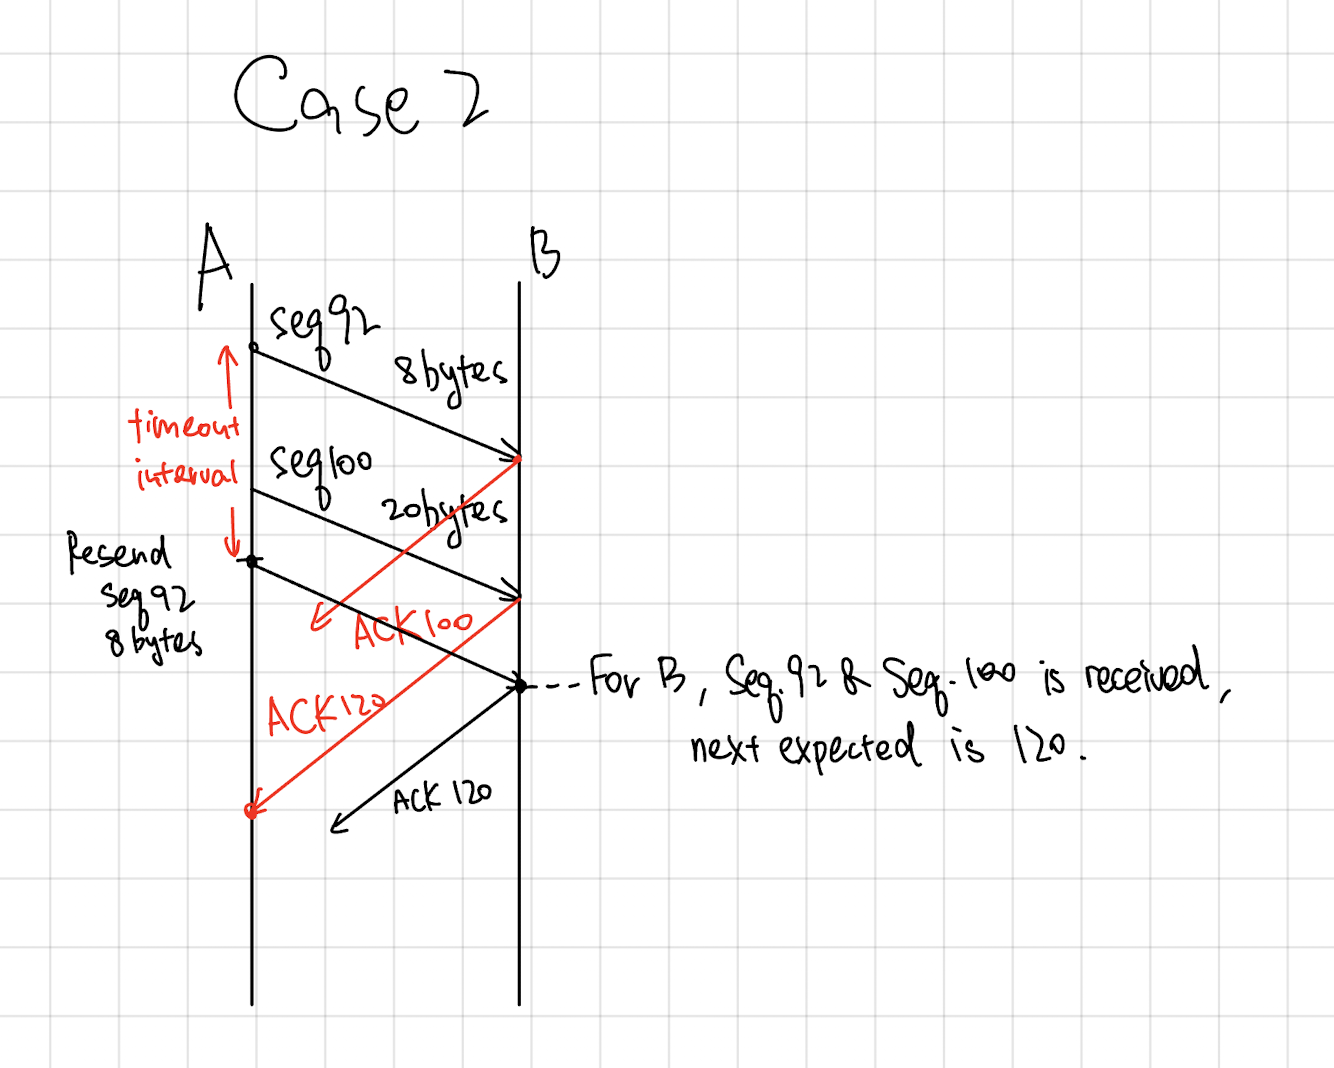 Case 2
A
B
seq 92
8 bytes
timeout
interval
seq 100
20 bytes
Resend
seq 92
8 bytes
ACK 100
ACK 120
For B, Seq. 92 & Seq. 100 is received,
next expected is 120.
ACK 120